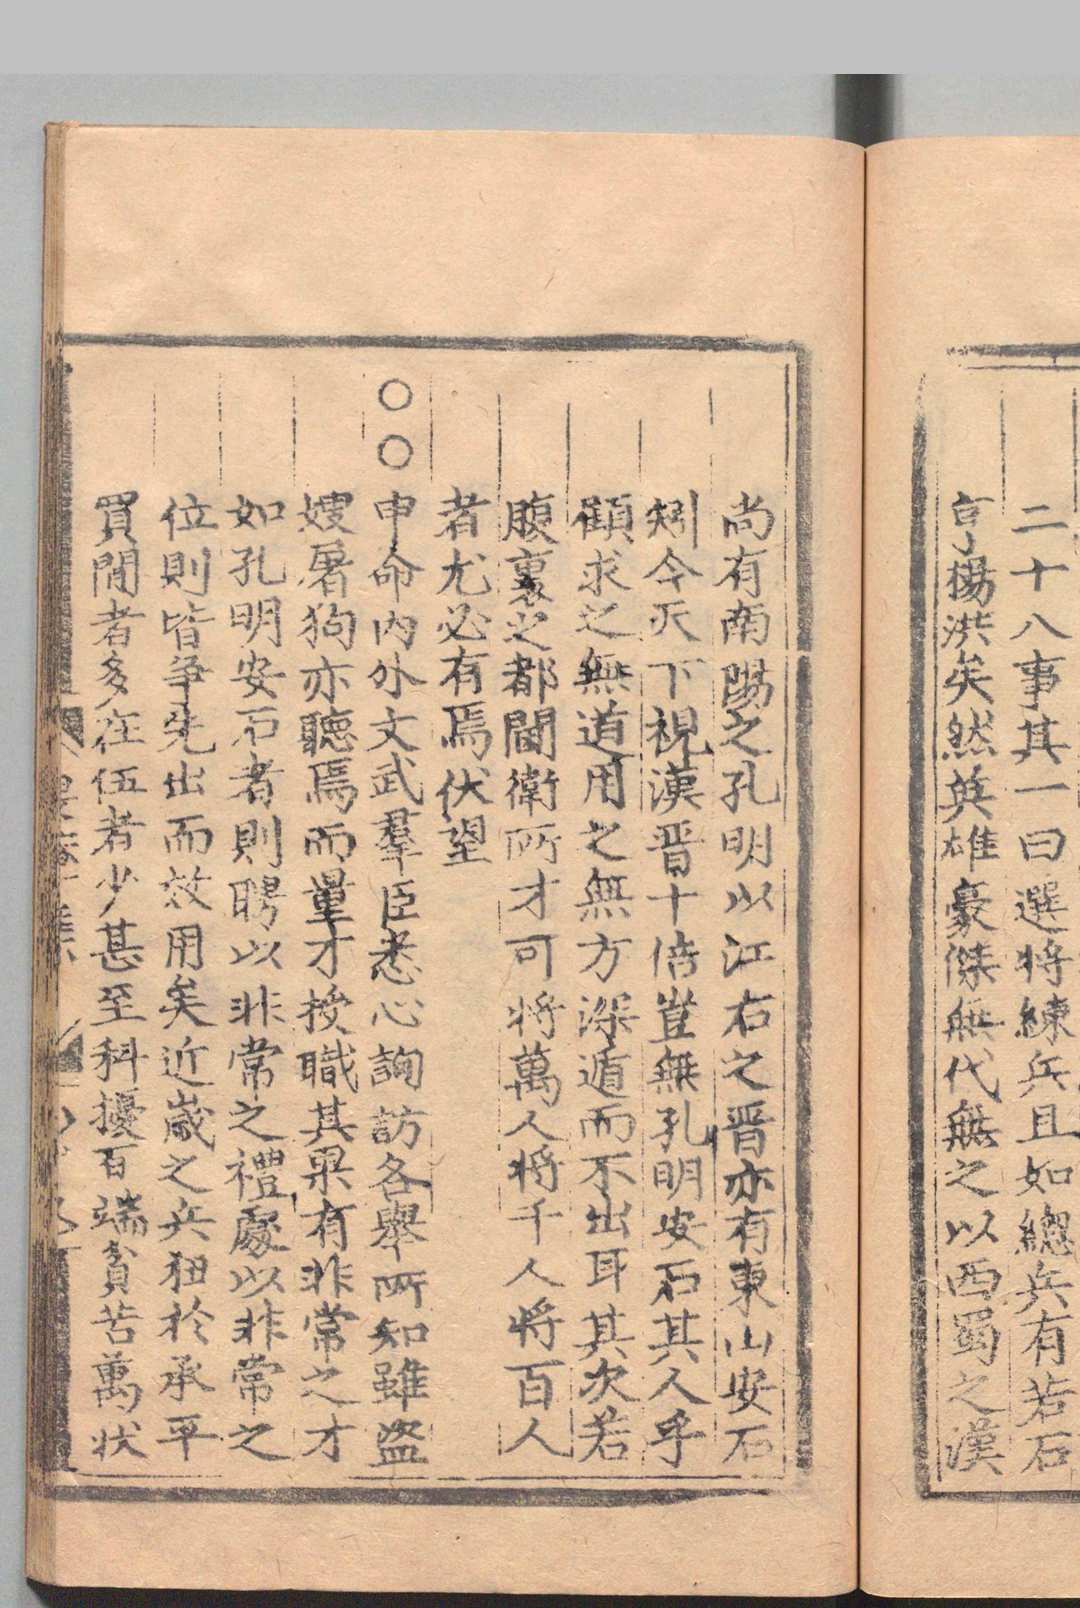 二十八事其一曰選將練兵且如總兵有若石
亨楊洪矣然英雄豪傑無代無之以西蜀之漢
尚有南陽之孔明以江右之晉亦有東山安石
矧今天下視漢晉十倍豈無孔明安石其人乎
顧求之無道用之無方深遁而不出耳其次若
腹裏之都閫衛所才可將萬人將千人將百人
者尤必有焉伏望
○○申命內外文武羣臣悉心詢訪各舉所知雖盜
嫂屠狗亦聽焉而量才授職其果有非常之才
如孔明安石者則聘以非常之禮處以非常之
位則皆爭先出而效用矣近歲之兵狃於承平
買閒者多在伍者少甚至科擾百端貧苦萬狀